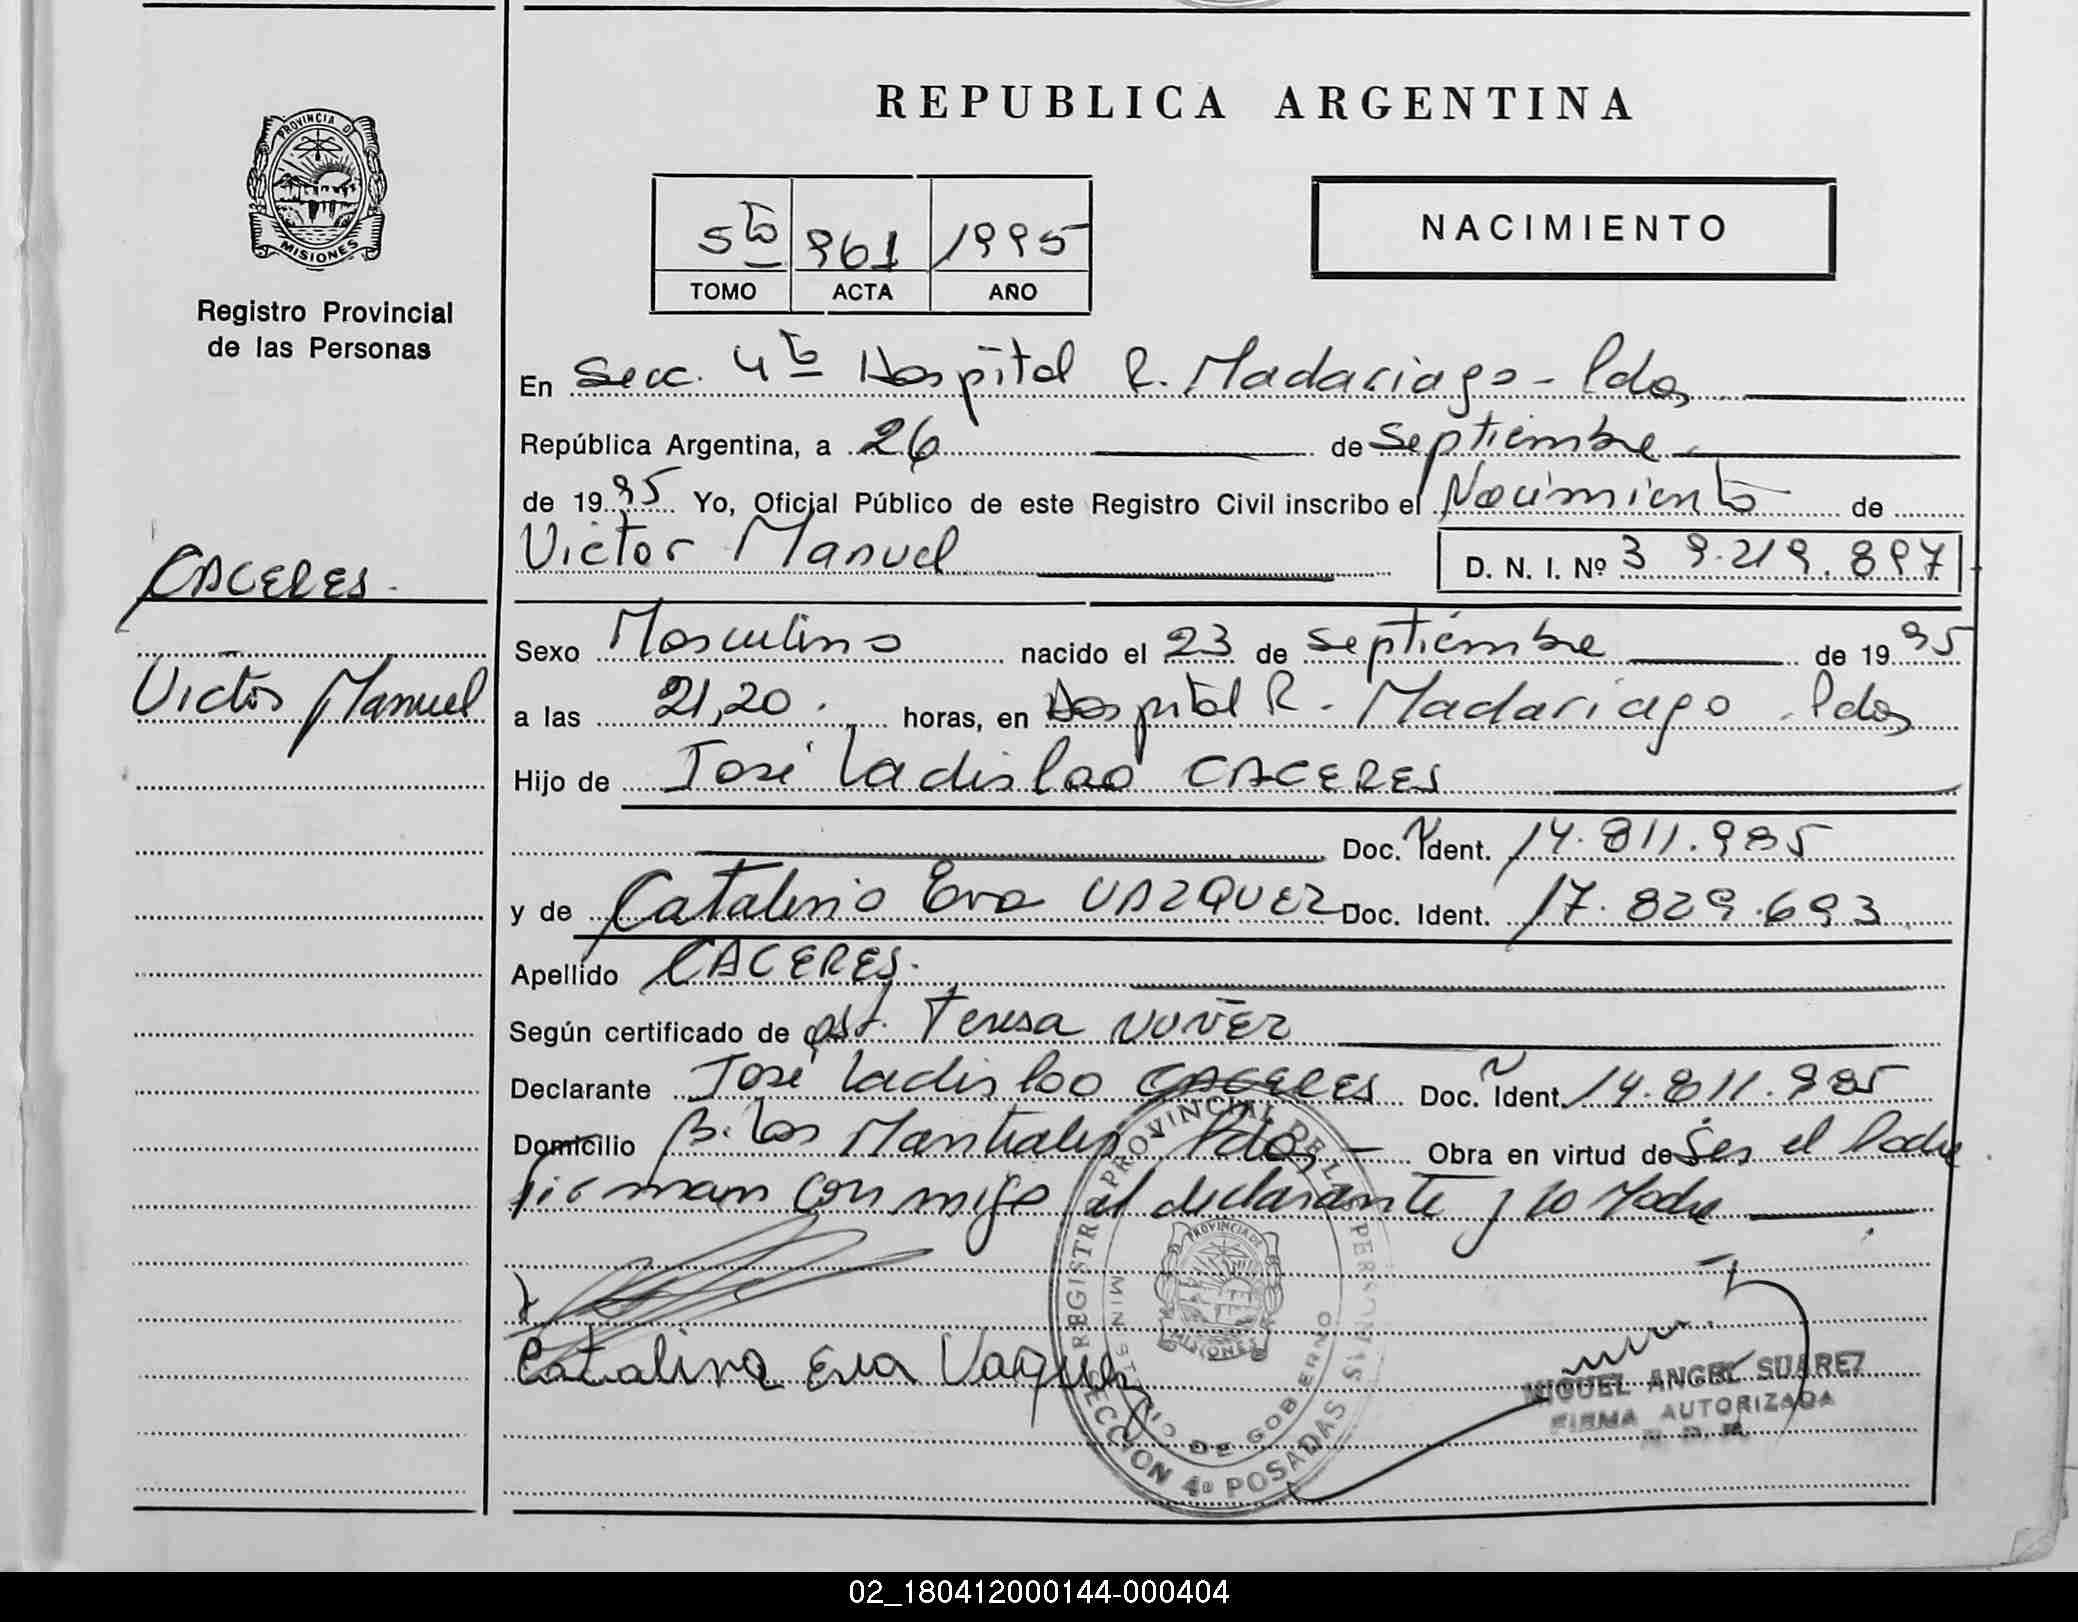 REPUBLICA ARGENTINA
PROVINCIA DE
MISIONES
Registro Provincial
de las Personas
NACIMIENTO
5to 961 1995
TOMO ACTA AÑO
En Secc. 4ta Hospital R. Madariaga - Pdas
República Argentina, a 26 de Septiembre
de 1995 Yo, Oficial Público de este Registro Civil inscribo el Nacimiento de
Victor Manuel D. N. I. Nº 39.219.897
CACERES.
Victor Manuel
Sexo Masculino nacido el 23 de septiembre de 1995
a las 21,20. horas, en Hospital R. Madariaga. Pdas
Hijo de José Ladislao CACERES
Doc. Ident. 14.811.985
y de Catalina Eva VAZQUEZ Doc. Ident. 17.829.693
Apellido CACERES.
Según certificado de obst. Teresa NUÑEZ
Declarante José Ladislao CACERES Doc. Ident. 14.811.985
Domicilio B. Los Manantiales Pdas - Obra en virtud de Ser el Padre
Firman conmigo el declarante y la Madre
Catalina Eva Vaquez
REGISTRO PROVINCIAL DE LAS PERSONAS
MINISTERIO DE GOBIERNO
PROVINCIA DE
MISIONES
SECCION 4a POSADAS
MIGUEL ANGEL SUAREZ
FIRMA AUTORIZADA
02_180412000144-000404